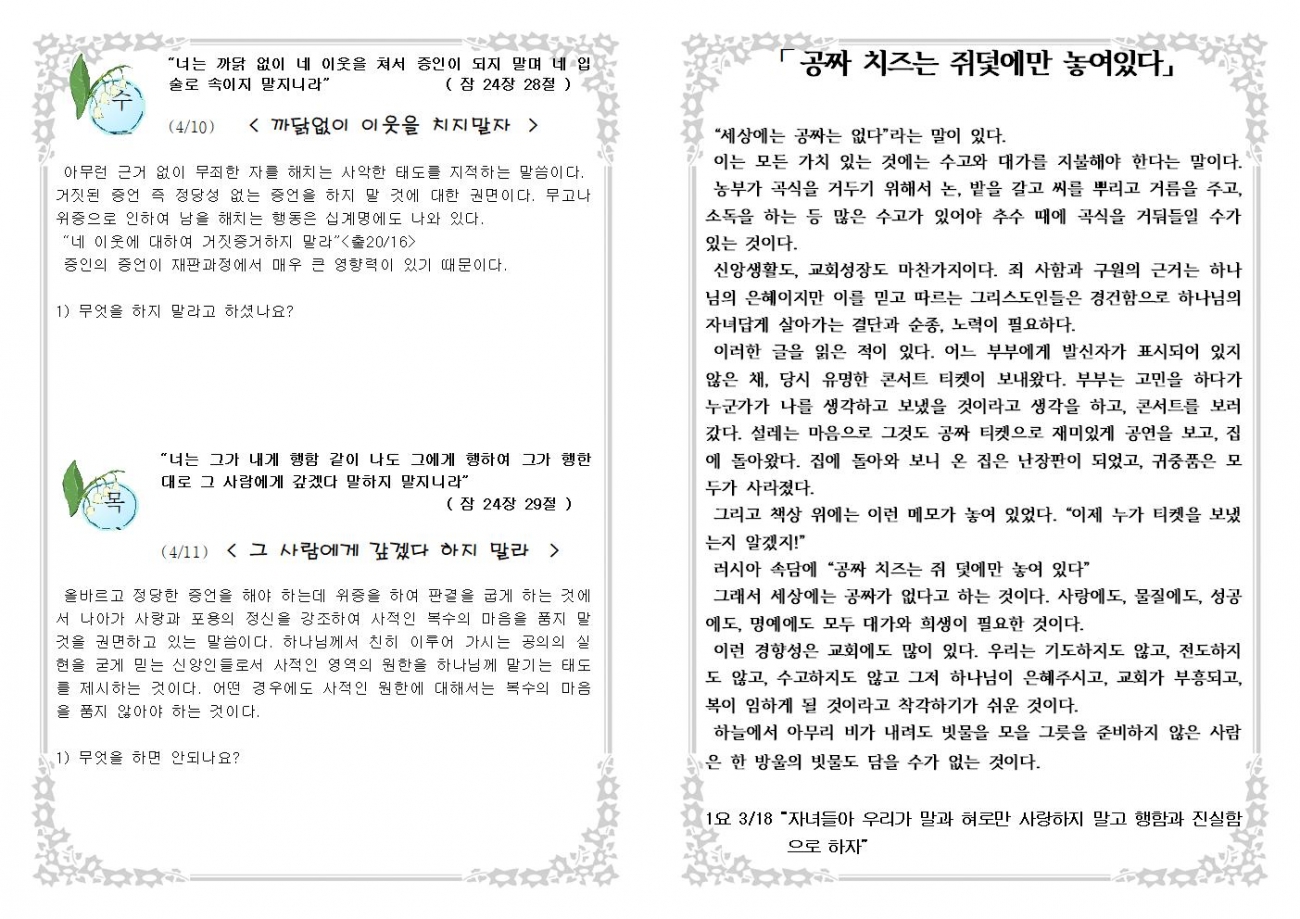 수
“너는 까닭 없이 네 이웃을 쳐서 증인이 되지 말며 네 입
술로 속이지 말지니라” ( 잠 24장 28절 )
(4/10) < 까닭없이 이웃을 치지말자 >
아무런 근거 없이 무죄한 자를 해치는 사악한 태도를 지적하는 말씀이다.
거짓된 증언 즉 정당성 없는 증언을 하지 말 것에 대한 권면이다. 무고나
위증으로 인하여 남을 해치는 행동은 십계명에도 나와 있다.
“네 이웃에 대하여 거짓증거하지 말라”<출20/16>
증인의 증언이 재판과정에서 매우 큰 영향력이 있기 때문이다.
1) 무엇을 하지 말라고 하셨나요?
목
“너는 그가 내게 행함 같이 나도 그에게 행하여 그가 행한
대로 그 사람에게 갚겠다 말하지 말지니라”
( 잠 24장 29절 )
(4/11) < 그 사람에게 갚겠다 하지 말라 >
올바르고 정당한 증언을 해야 하는데 위증을 하여 판결을 굽게 하는 것에
서 나아가 사랑과 포용의 정신을 강조하여 사적인 복수의 마음을 품지 말
것을 권면하고 있는 말씀이다. 하나님께서 친히 이루어 가시는 공의의 실
현을 굳게 믿는 신앙인들로서 사적인 영역의 원한을 하나님께 맡기는 태도
를 제시하는 것이다. 어떤 경우에도 사적인 원한에 대해서는 복수의 마음
을 품지 않아야 하는 것이다.
1) 무엇을 하면 안되나요?
「 공짜 치즈는 쥐덫에만 놓여있다」
“세상에는 공짜는 없다”라는 말이 있다.
이는 모든 가치 있는 것에는 수고와 대가를 지불해야 한다는 말이다.
농부가 곡식을 거두기 위해서 논, 밭을 갈고 씨를 뿌리고 거름을 주고,
소독을 하는 등 많은 수고가 있어야 추수 때에 곡식을 거둬들일 수가
있는 것이다.
신앙생활도, 교회성장도 마찬가지이다. 죄 사함과 구원의 근거는 하나
님의 은혜이지만 이를 믿고 따르는 그리스도인들은 경건함으로 하나님의
자녀답게 살아가는 결단과 순종, 노력이 필요하다.
이러한 글을 읽은 적이 있다. 어느 부부에게 발신자가 표시되어 있지
않은 채, 당시 유명한 콘서트 티켓이 보내왔다. 부부는 고민을 하다가
누군가가 나를 생각하고 보냈을 것이라고 생각을 하고, 콘서트를 보러
갔다. 설레는 마음으로 그것도 공짜 티켓으로 재미있게 공연을 보고, 집
에 돌아왔다. 집에 돌아와 보니 온 집은 난장판이 되었고, 귀중품은 모
두가 사라졌다.
그리고 책상 위에는 이런 메모가 놓여 있었다. “이제 누가 티켓을 보냈
는지 알겠지!”
러시아 속담에 “공짜 치즈는 쥐 덫에만 놓여 있다”
그래서 세상에는 공짜가 없다고 하는 것이다. 사랑에도, 물질에도, 성공
에도, 명예에도 모두 대가와 희생이 필요한 것이다.
이런 경향성은 교회에도 많이 있다. 우리는 기도하지도 않고, 전도하지
도 않고, 수고하지도 않고 그저 하나님이 은혜주시고, 교회가 부흥되고,
복이 임하게 될 것이라고 착각하기가 쉬운 것이다.
하늘에서 아무리 비가 내려도 빗물을 모을 그릇을 준비하지 않은 사람
은 한 방울의 빗물도 담을 수가 없는 것이다.
1요 3/18 “자녀들아 우리가 말과 혀로만 사랑하지 말고 행함과 진실함
으로 하자”